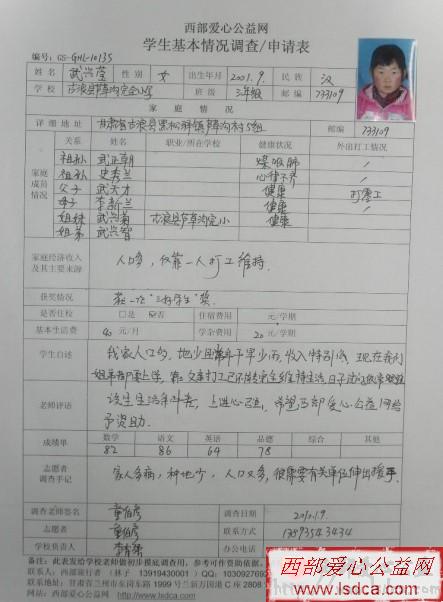 西部爱心公益网
学生基本情况调查/申请表
编号: GS-GHL-10135
姓名 武兴莹 性别 女 出生年月 2001.9. 民族 汉
学校 班级 3年级 邮编 733109
家庭情况
详细地址 甘肃省古浪县黑松驿镇 村5组 邮编 733109
关系 姓名 职业/所在学校 健康状况 外出打工情况
家庭成员情况
祖孙 武正朝 /
祖孙 史秀兰 心律不齐 /
父子 武天才 健康 打零工
母子 李新兰 健康 /
姐妹 武兴菊 健康 /
姐弟 武兴智
家庭经济收入及其主要来源 人口多,仅靠一人打工维持.
获奖情况 获一次“三好学生”奖.
是否住校 □是 否 住宿费用 元/学期
基本生活费 40 元/月 学杂费用 20 元/学期
学生自述 我家人口多,地少且常年干旱少雨,收入特别低,现在我们
姐弟都要上学,靠父亲打工已不能完全维持生活,日子过
老师评语 该生生活朴素,上进心强,希望西部爱心公益网给
予资助.
成绩单 数学 语文 英语 品德 综合 其他
82 86 64 78
志愿者调查手记 家人多病,种地少,人口又多,很需要有关单位伸出援手.
调查老师签名 董伯彦 调查日期 2010.1.9.
志愿者 董伯彦 联系方式 13893543434
学校负责人 办公电话
备注:此表发给学校老师做初步摸底调查用,参考可作资助依据。
联系人:西部旅行者 (林子 13919430001) QQ:1030927692
联系地址:甘肃省兰州市东岗东路1999号兰新万国港C座280
http://www.lsdca.com
西部爱心公益网
www.lsdca.com